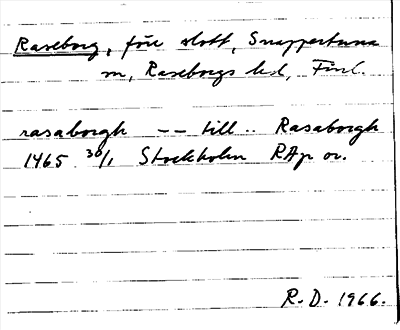 Raseborg, förr slott, Snappertuna
sn, Raseborgs hd, Finl.
rasaborgh -- till .. Rasaborgh
1465 30/1 Stockholm RAp or.
R.D. 1966.